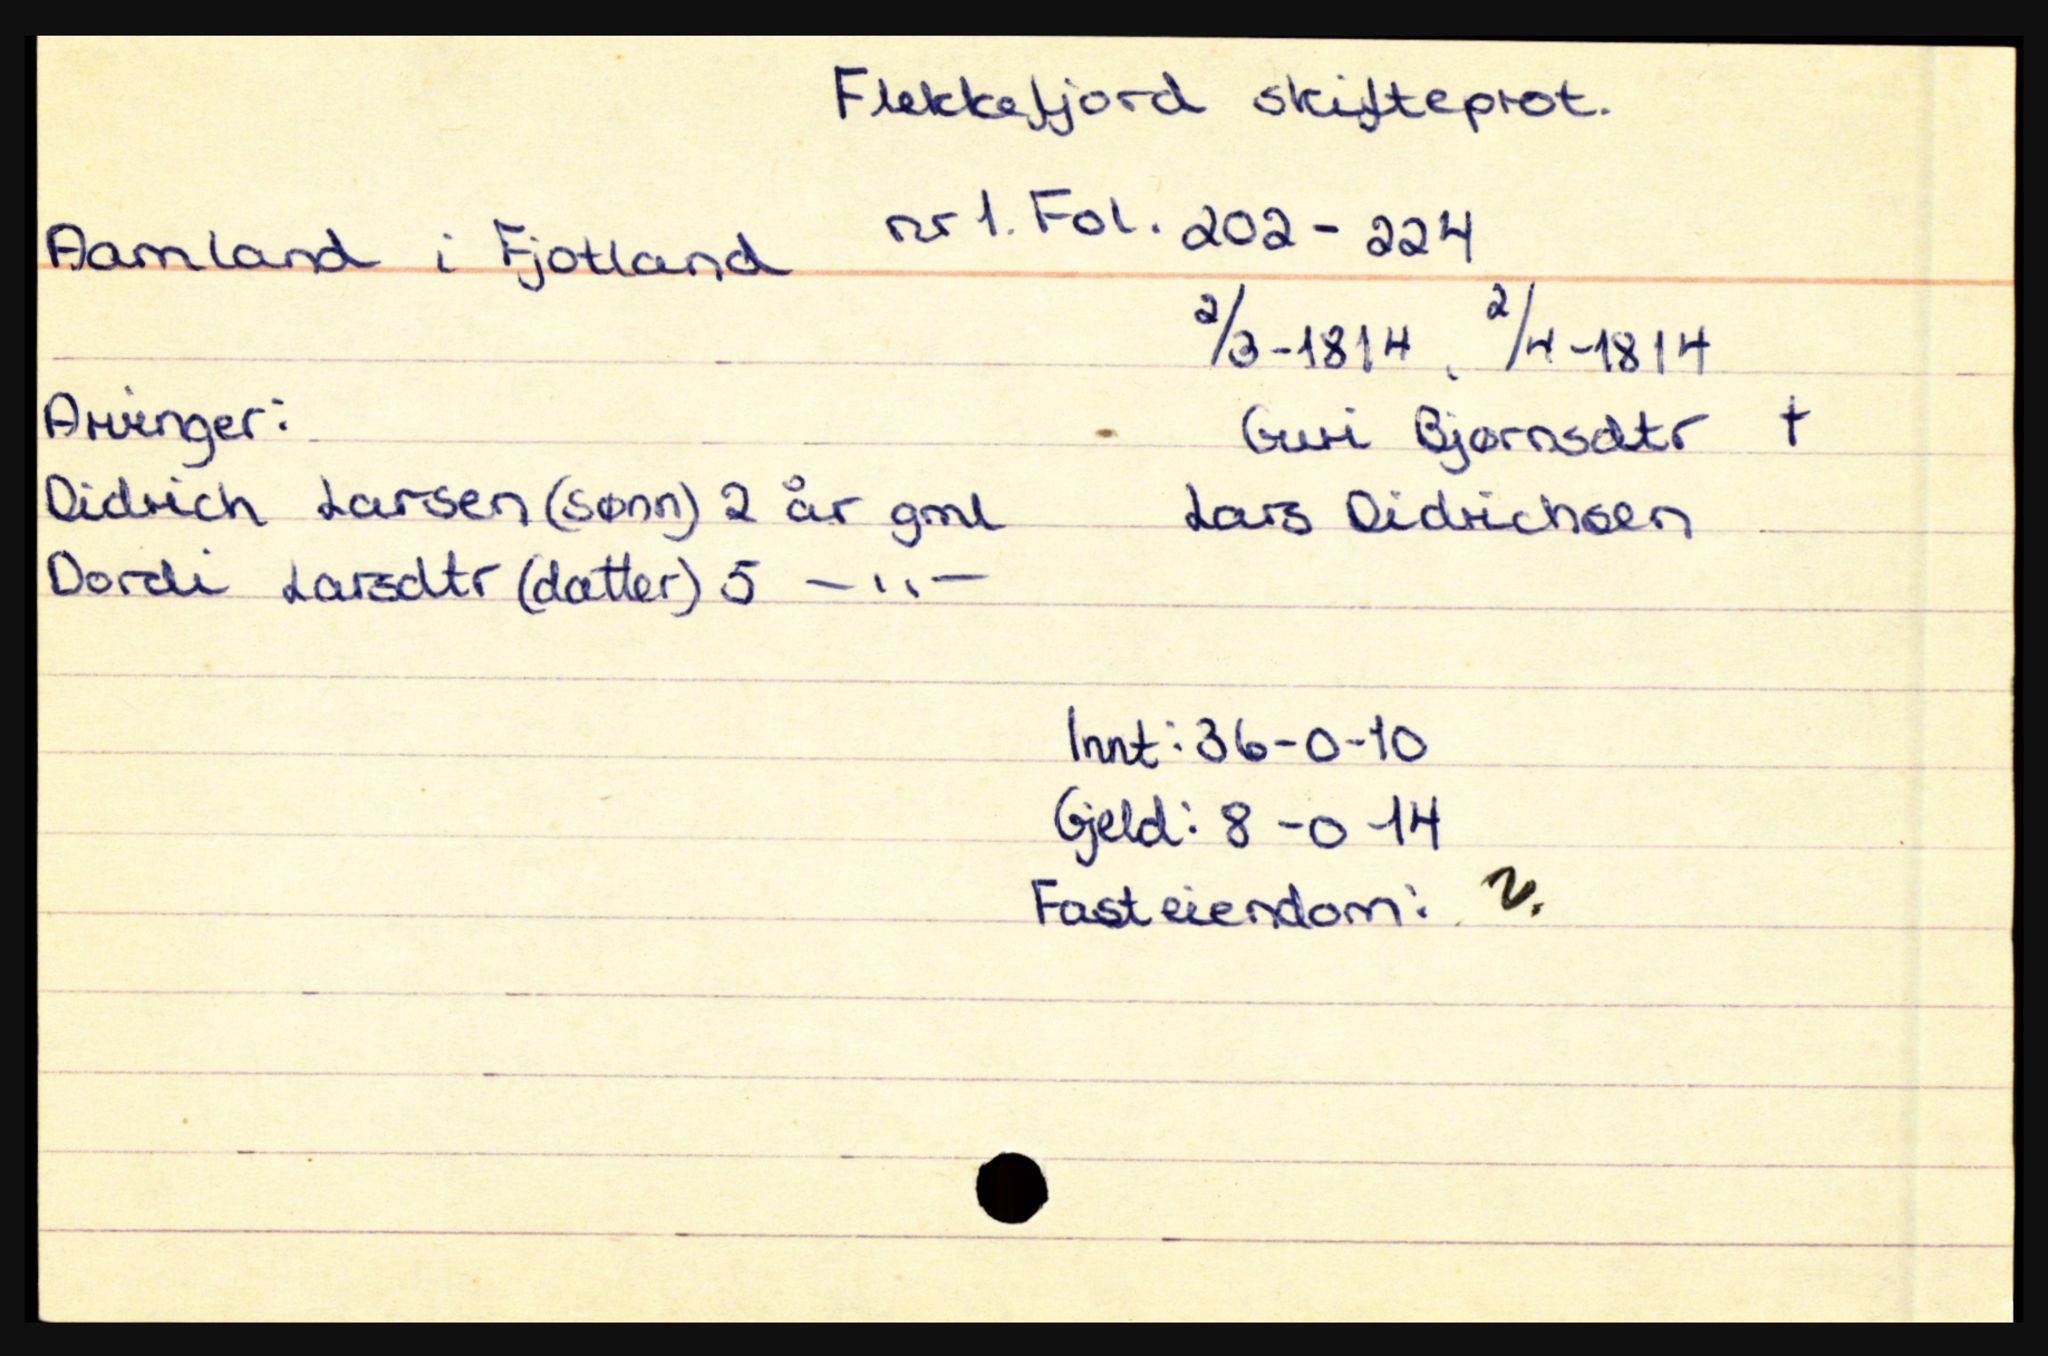 Flekkefjord skifteprot.
Aamland i Fjotland nr 1. Fol. 202 - 224
2/3 - 1814, 2/4 - 1814
Arvinger: Guri Bjørnsdtr †
Didrich Larsen (sønn) 2 år gml Lars Didrichsen
Dordi Larsdtr (datter) 5 — ,, —
Innt: 36 - 0 - 10
Gjeld: 8 - 0 - 14
Fast eiendom: